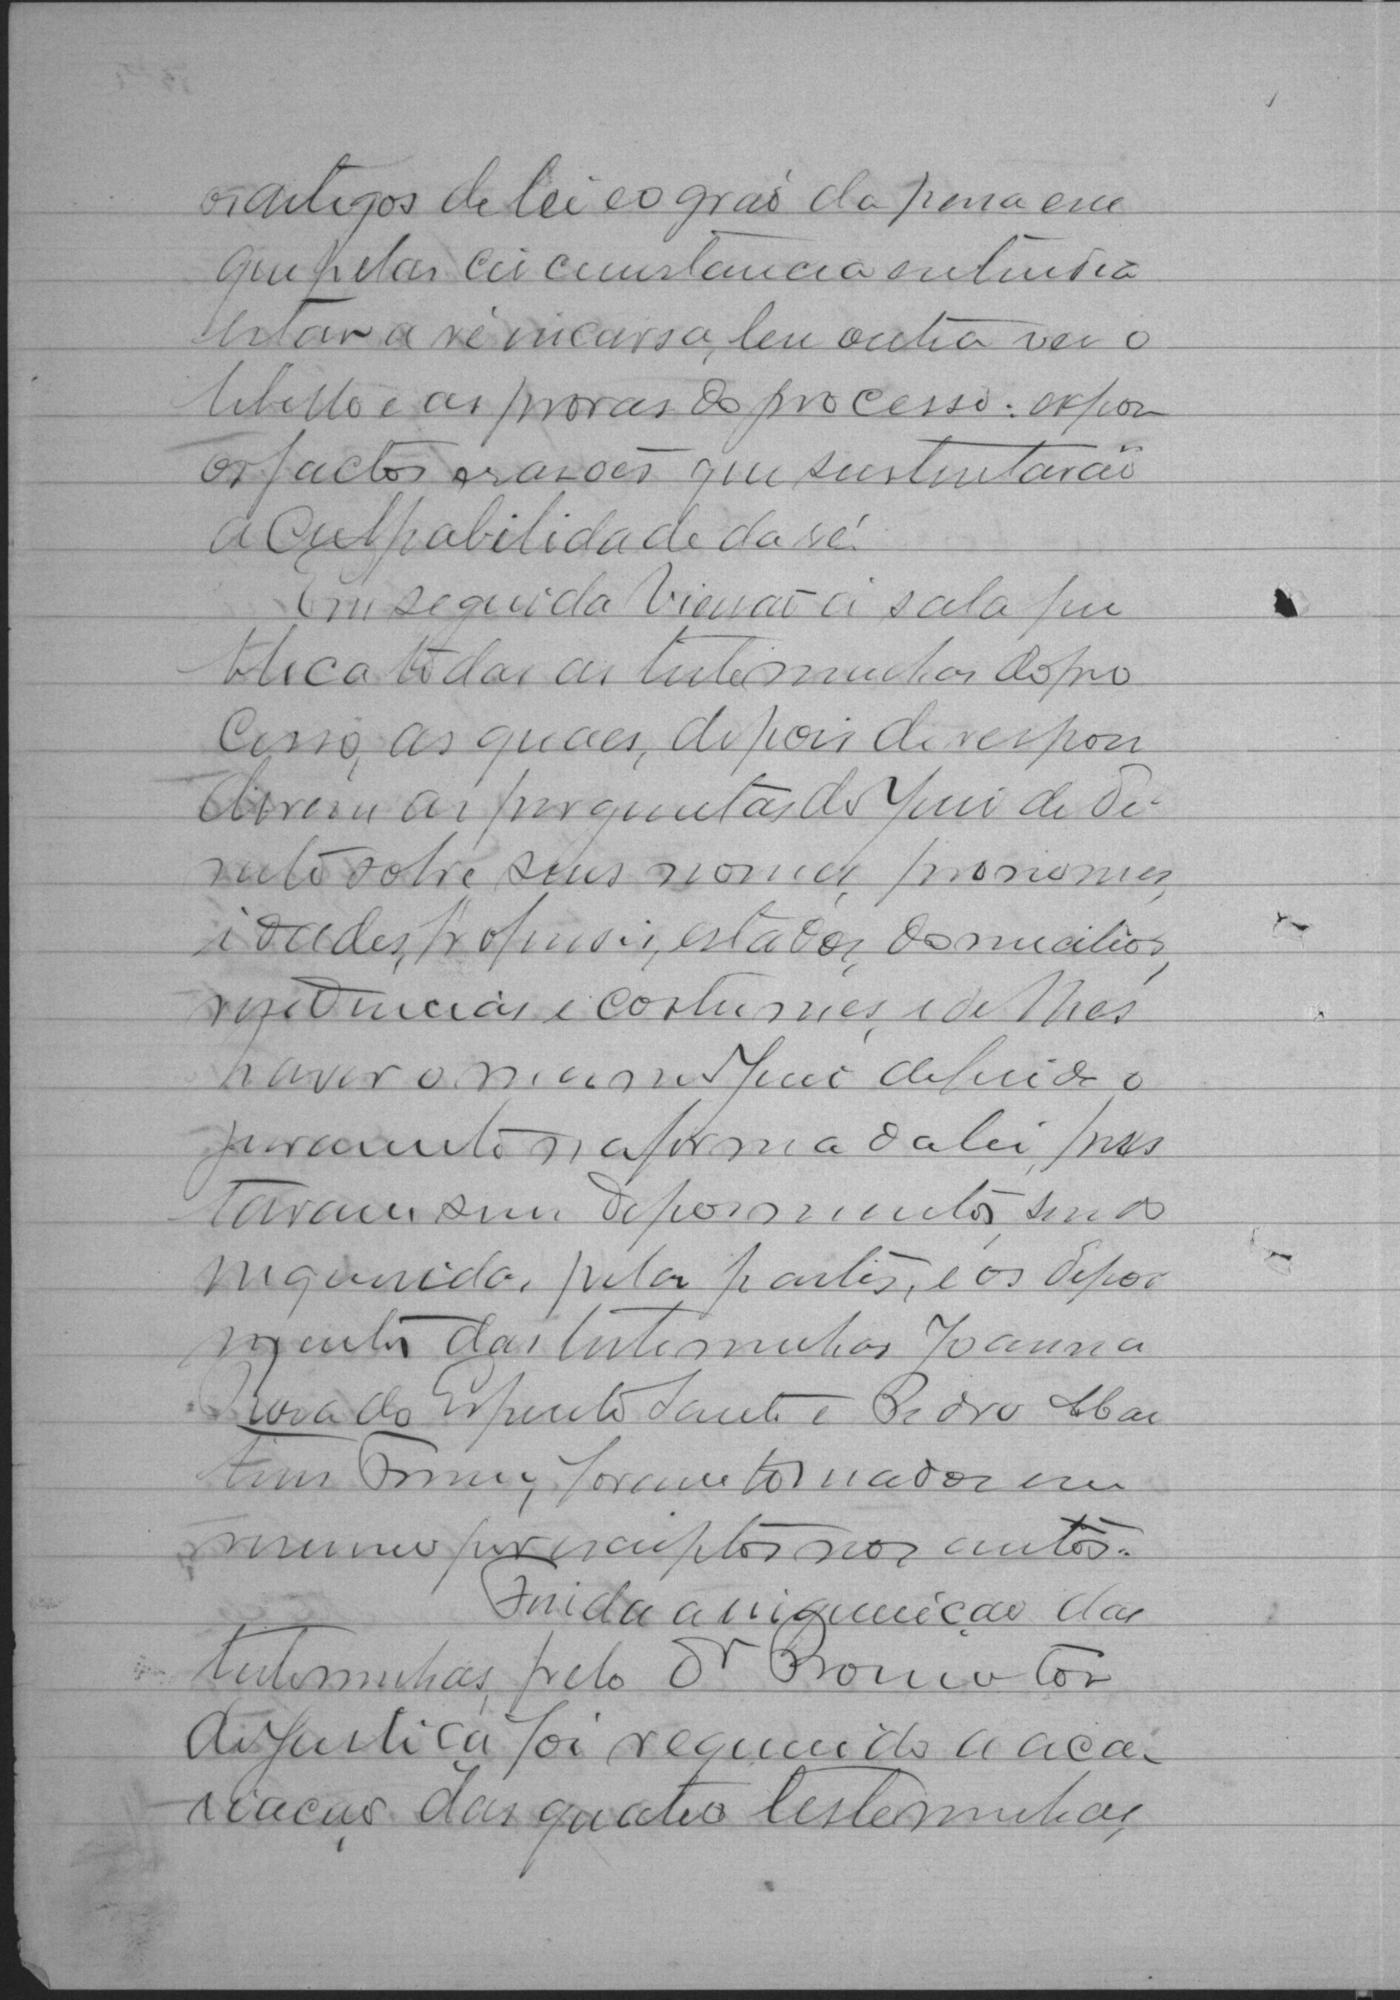 os artigos de lei e o gráo da pena em
que pelas circumstancia entendia
estar a ré incursa, leu outra vez o
libello e as provas do processo: expoz
os factos e razões que sustentarão
a culpabilidade da ré.
Em seguida vierão á sala pu
blica todas as testemunhas do pro
cesso, as quaes, depois de respon
derem as perguntas do Juiz de Di-
reito sobre seus nomes, pronomes,
idades, profissões, estados, domicilios,
residencias e costumes, e de lhes
haver o mesmo Juiz deferido o
juramento na forma da lei, pres
taram seus depoimentos, sendo
requeridas pelas partes, e os depoi
mentos das testemunhas Joanna
Rosa do Espirito Santo e Pedro Mar
tins, foram tomados em
resumo por escriptos nos autos.
Finda a inquirição das
testemunhas, pelo Dr Promotor
de Justiça foi requerido a aca-
riação das quatro testemunhas,